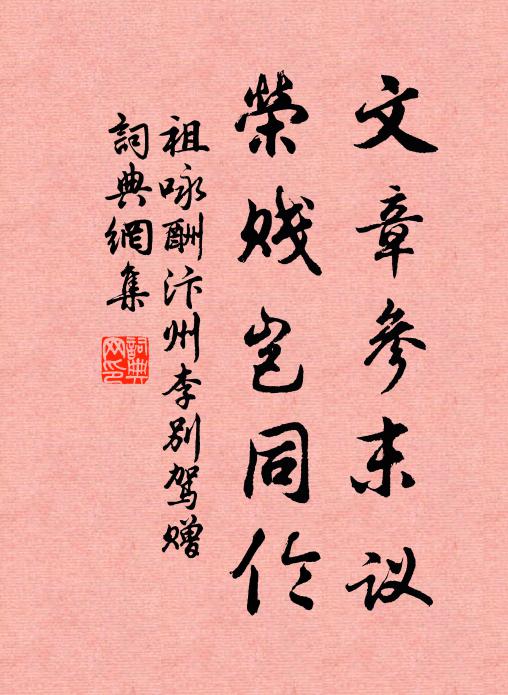 文章參末议
榮贱岂同伦
祖咏酬汴州李别驾赠
詞典網集
詞典网印